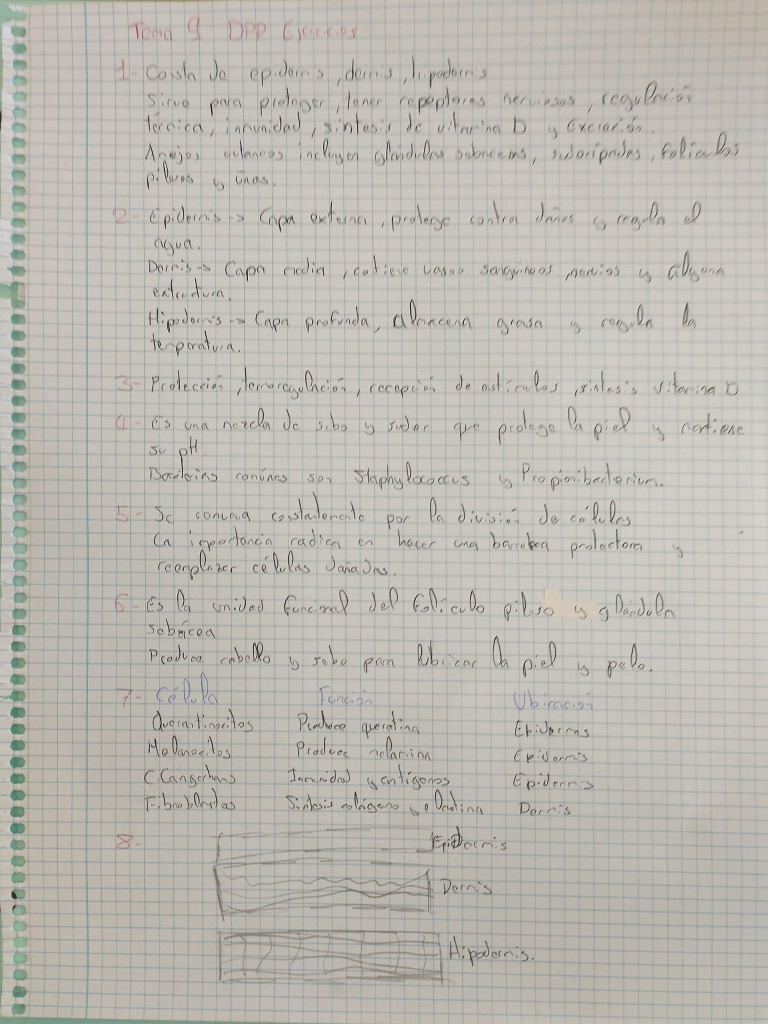 Tema 9 DPP Ejercicios
1- Costa de epidermis, dermis, hipodermis
Sirve para proteger, tener repeptores nerviosos, regulación
térmica, inmunidad, síntesis de vitamina D y excreción.
Anejos cutaneos incluyen glándulas sebaceas, sudoríparas, folículos
pilosos y uñas.
2- Epidermis -> Capa externa, protege contra daños y regula el
agua.
Dermis -> Capa media, cotiene vasos sanguineos, nervios y alguna
extructura.
Hipodermis -> Capa profunda, almacena grasa y regula la
temperatura.
3- Protección, termoregulación, recepción de estímulos, síntesis vitamina D
4- Es una mezcla de sebo y sudor que protege la piel y mantiene
su pH.
Bacterias comúnes son Staphylococcus y Propionibacterium.
5- Se renueva constatemente por la división de células
La importancia radica en hacer una barrera protectora y
reemplazar células dañadas.
6- Es la unidad funcional del folículo piloso y glándula
sebácea
Produce cabello y sebo para lubricar la piel y pelo.
7- Célula Función Ubicación
Querantinocitos Produce queratina Epidermis
Melanocitos Produce melanina Epidermis
C. Langerhans Inmunidad y antígenos Epidermis
Fibroblastos Síntesis colágeno y elastina Dermis
8-
Epidermis
Dermis
Hipodermis.